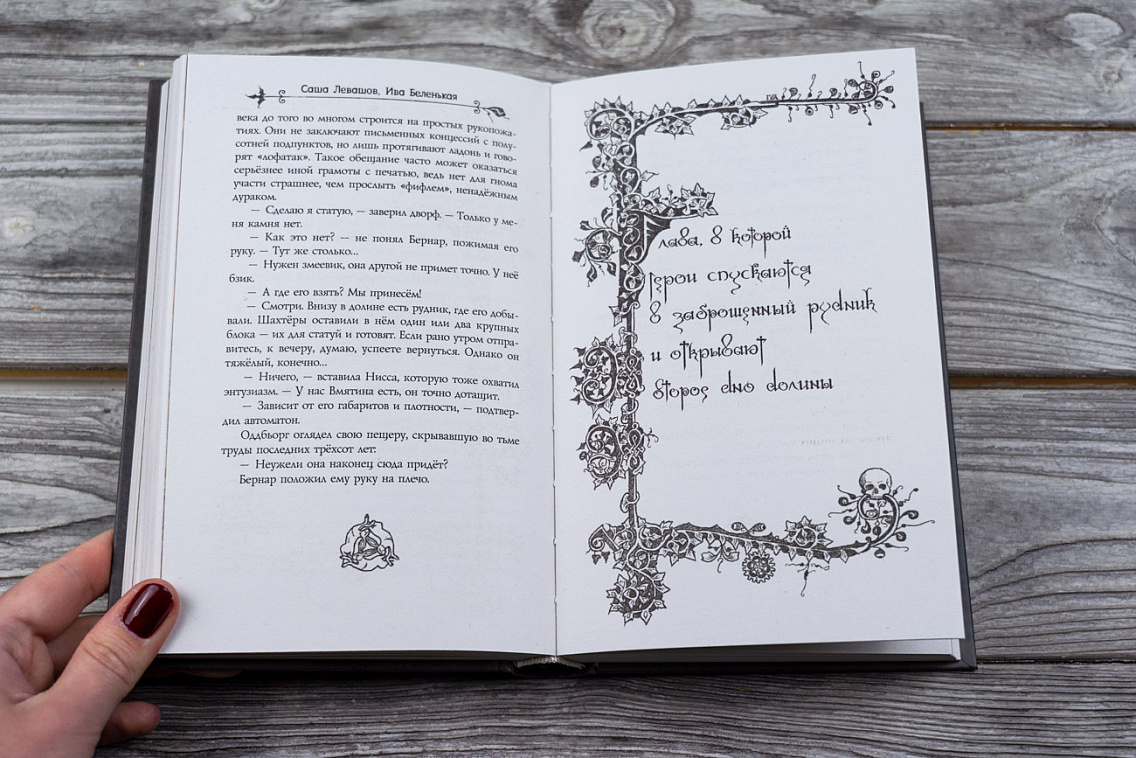 Саша Левашов, Ива Беленькая
века до того во многом строится на простых рукопожа-
тиях. Они не заключают письменных концессий с полу-
сотней подпунктов, но лишь протягивают ладонь и гово-
рят «лофатак». Такое обещание часто может оказаться
серьёзнее иной грамоты с печатью, ведь нет для гнома
участи страшнее, чем прослыть «фифлем», ненадёжным
дураком.
— Сделаю я статую, — заверил дворф. — Только у ме-
ня камня нет.
— Как это нет? — не понял Бернар, пожимая его
руку. — Тут же столько...
— Нужен змеевик, она другой не примет точно. У неё
бзик.
— А где его взять? Мы принесём!
— Смотри. Внизу в долине есть рудник, где его добы-
вали. Шахтёры оставили в нём один или два крупных
блока — их для статуй и готовят. Если рано утром отпра-
витесь, к вечеру, думаю, успеете вернуться. Однако он
тяжёлый, конечно...
— Ничего, — вставила Нисса, которую тоже охватил
энтузиазм. — У нас Вмятина есть, он точно дотащит.
— Зависит от его габаритов и плотности, — подтвер-
дил автоматон.
Оддбьорг оглядел свою пещеру, скрывавшую во тьме
труды последних трёхсот лет:
— Неужели она наконец сюда придёт?
Бернар положил ему руку на плечо.
Глава, в которой
герои спускаются
в заброшенный рудник
и открывают
второе дно долины